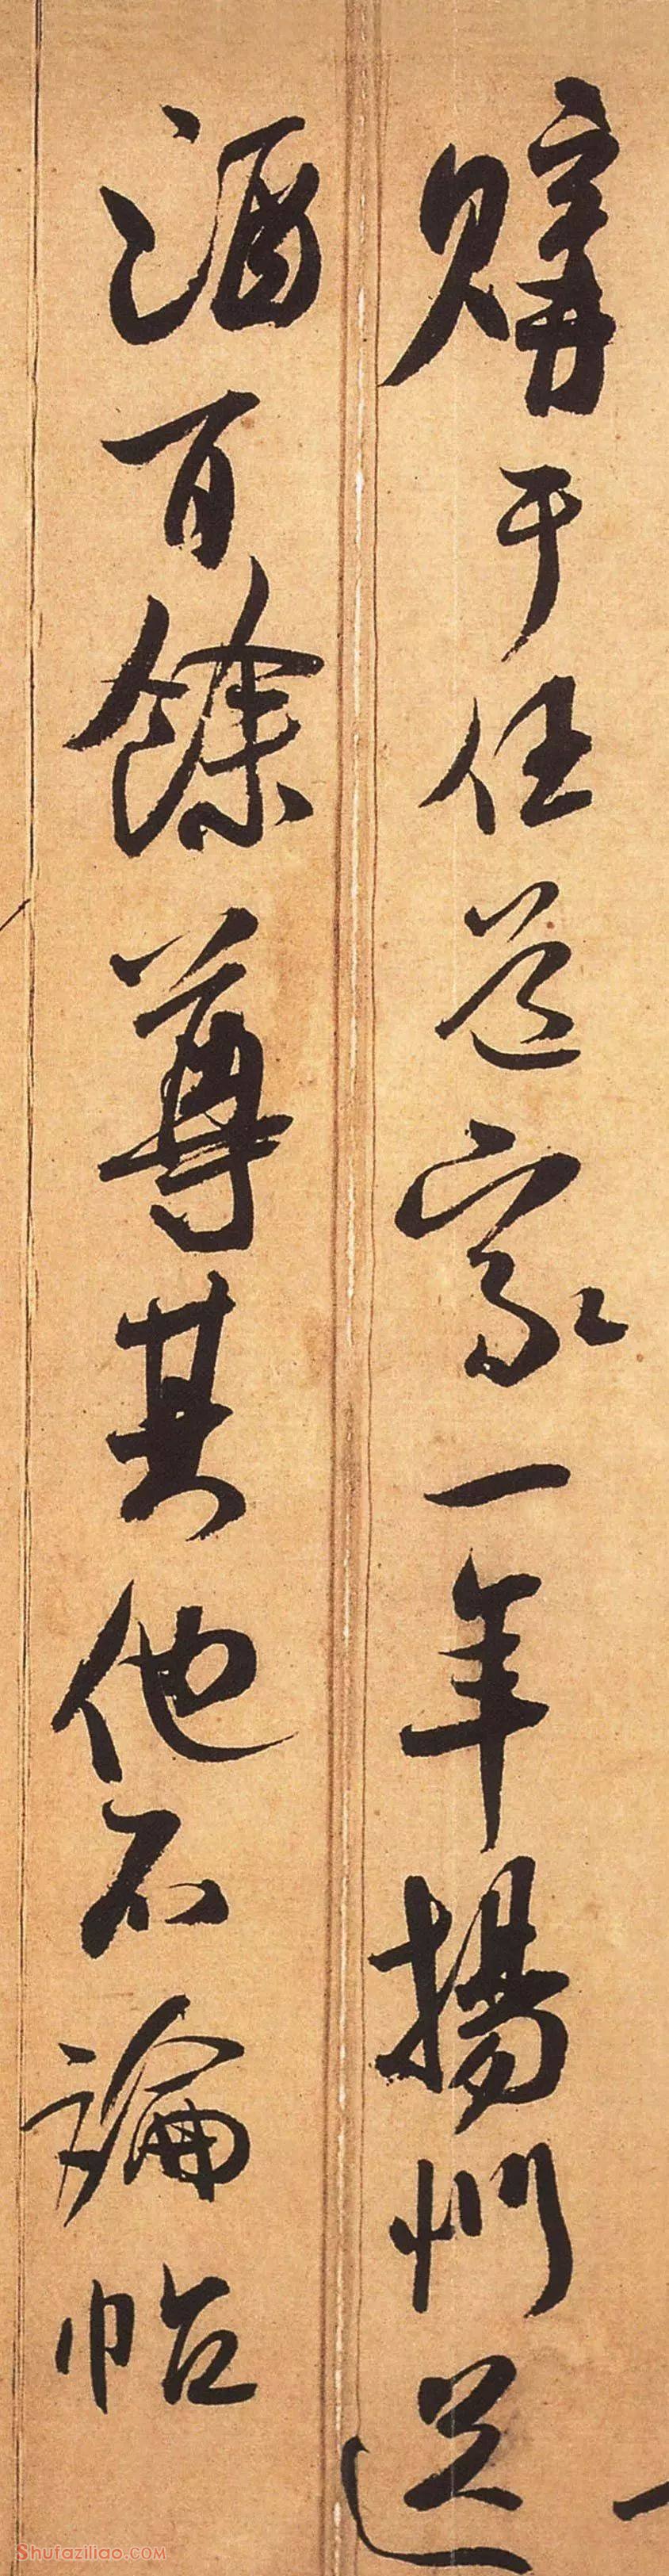 購于任道家一年揚州送
酒百餘尊其他不論帖
Shufaziliao.COM